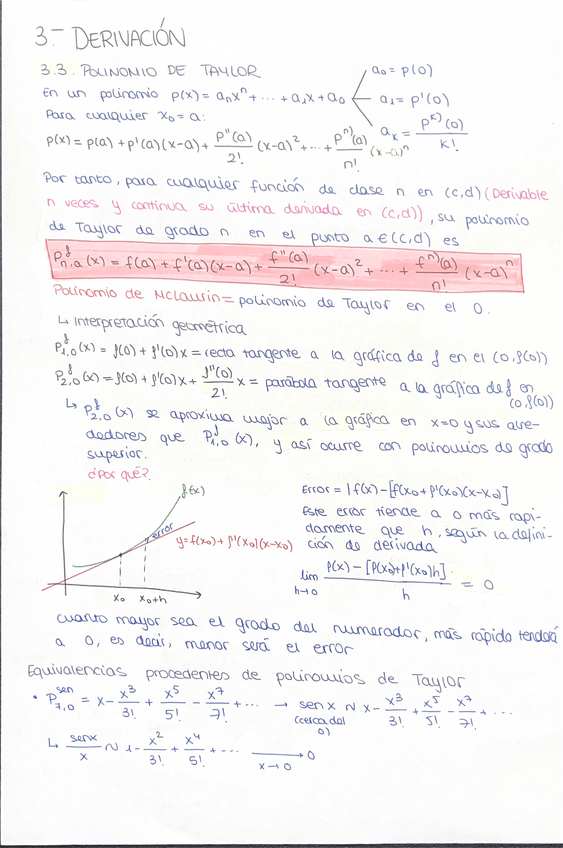 3.- DERIVACIÓN
3.3. POLINOMIO DE TAYLOR
En un polinomio p(x) = aₙxⁿ + ... + a₁x + a₀
a₀ = p(0)
a₁ = p'(0)
aₖ = pᵏ⁾(0)/k!
Para cualquier x₀ = a:
p(x) = p(a) + p'(a)(x-a) + p''(a)/2! (x-a)² + ... + pⁿ⁾(a)/n! (x-a)ⁿ
Por tanto, para cualquier función de clase n en (c,d) (Derivable
n veces y continua su última derivada en (c,d)), su polinomio
de Taylor de grado n en el punto a ∈ (c,d) es
Pᶠₙ,ₐ(x) = f(a) + f'(a)(x-a) + f''(a)/2! (x-a)² + ... + fⁿ⁾(a)/n! (x-a)ⁿ
Polinomio de McLaurin = polinomio de Taylor en el 0.
↳ Interpretación geométrica
Pᶠ₁,₀(x) = f(0) + f'(0)x = recta tangente a la gráfica de f en el (0,f(0))
Pᶠ₂,₀(x) = f(0) + f'(0)x + f''(0)/2! x = parábola tangente a la gráfica de f en
(0,f(0))
↳ Pᶠ₂,₀(x) se aproxima mejor a la gráfica en x=0 y sus alre-
dedores que Pᶠ₁,₀(x), y así ocurre con polinomios de grado
superior.
¿Por qué?
f(x)
error
y = f(x₀) + f'(x₀)(x-x₀)
x₀ x₀+h
Error = |f(x) - [f(x₀ + f'(x₀)(x-x₀)]
Este error tiende a 0 más rapi-
damente que h, según la defini-
ción de derivada
lim h→0 f(x) - [f(x₀) + f'(x₀)h] / h = 0
cuanto mayor sea el grado del numerador, más rápido tenderá
a 0, es decir, menor será el error
Equivalencias procedentes de polinomios de Taylor
• Pˢᵉⁿ₇,₀ = x - x³/3! + x⁵/5! - x⁷/7! + ... → sen x ~ x - x³/3! + x⁵/5! - x⁷/7! + ...
(cerca del
0)
↳ senx/x ~ 1 - x²/3! + x⁴/5! + ... → 0
x→0